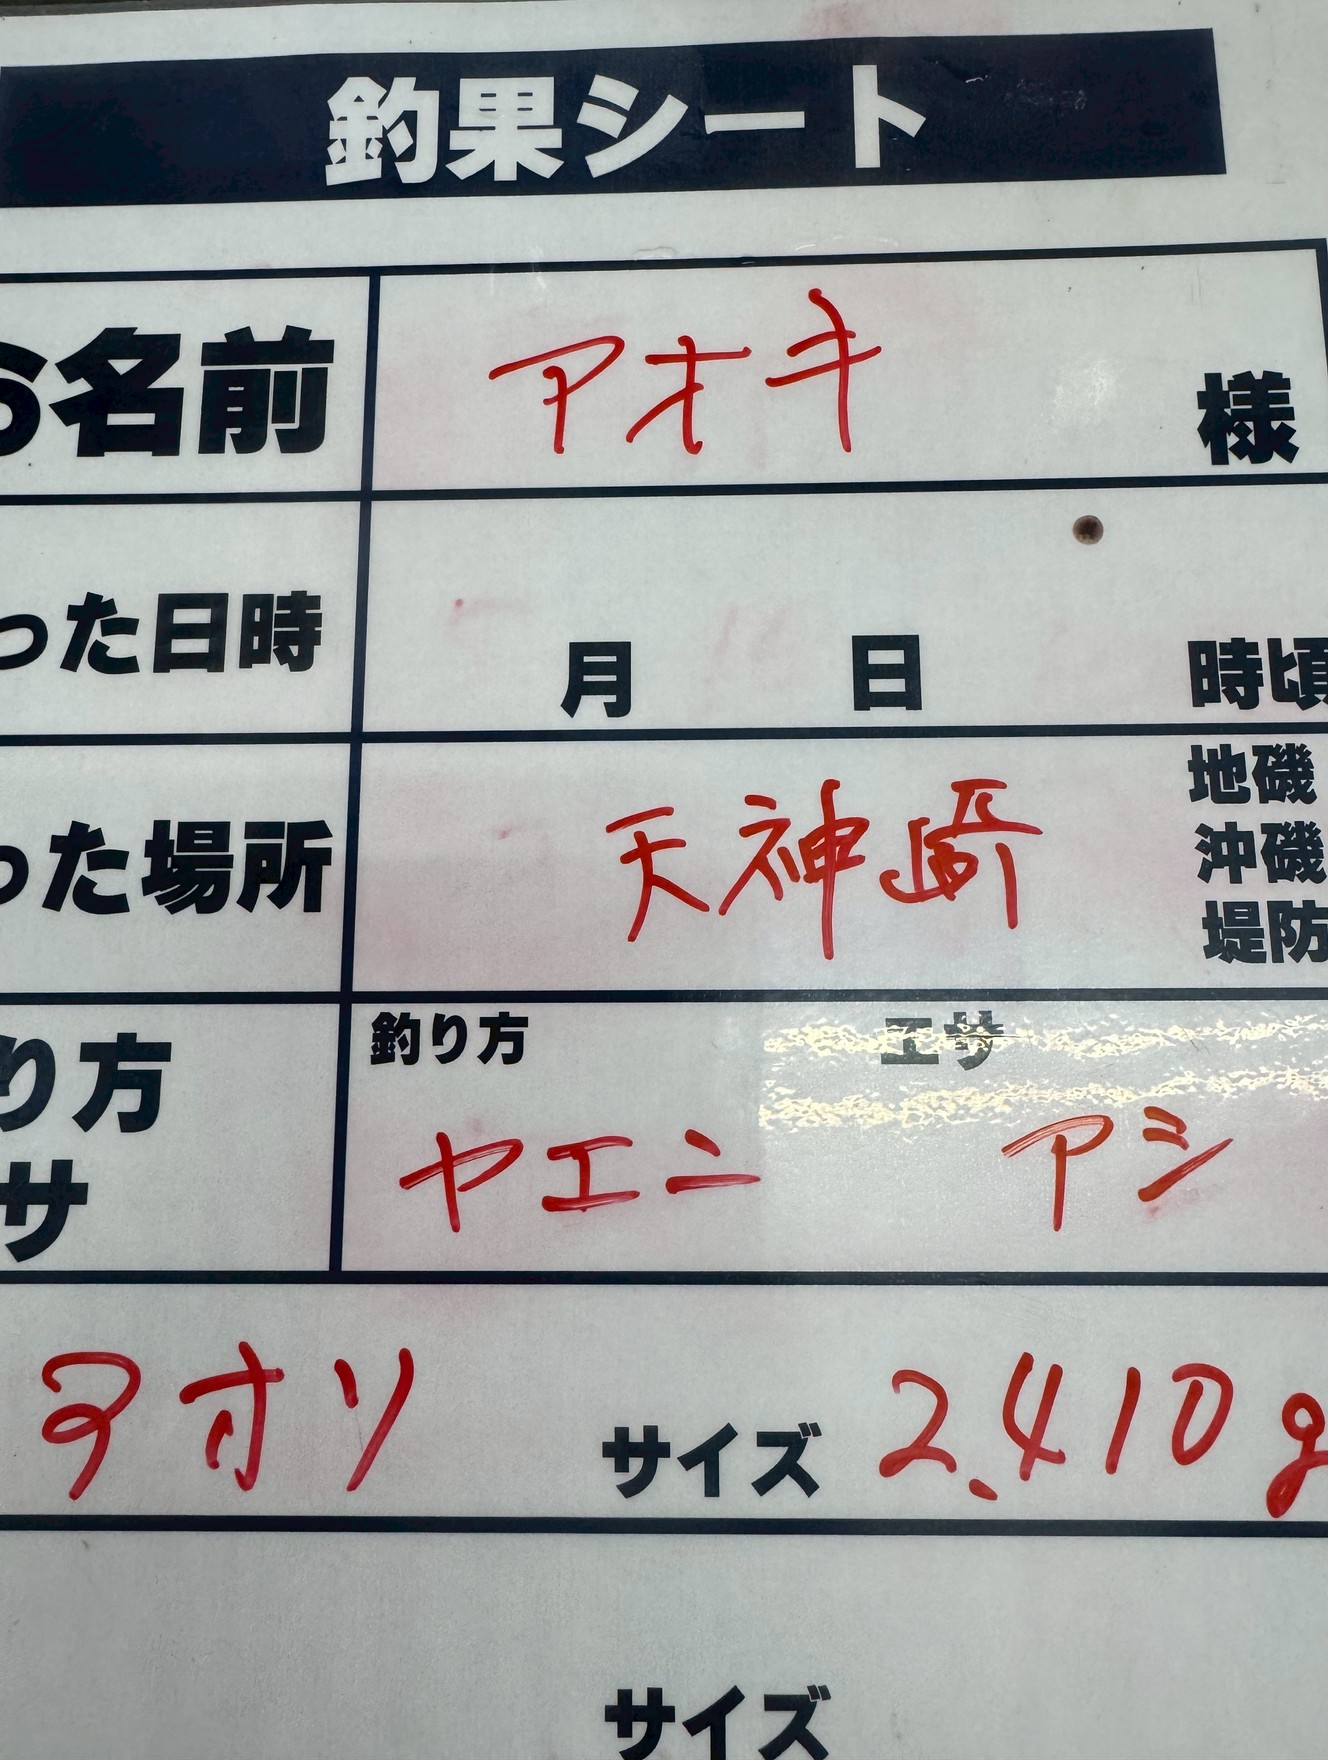 釣果シート
お名前 アオキ 様
った日時 月 日 時頃
った場所 天神崎 地磯
沖磯
堤防
り方 釣り方 エサ
サ ヤエン アジ
アオリ サイズ 2.410g
サイズ